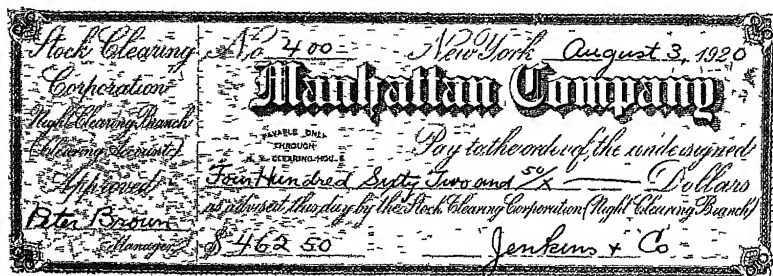 Stock Clearing
Corporation
Night Clearing Branch
(Clearing Account)
Approved
Peter Brown
Manager
No 400 New York August 3, 1920
Manhattan Company
PAYABLE ONLY
THROUGH
CLEARING HOUSE
Pay to the order of the undersigned
Four Hundred Sixty Two and 50/x Dollars
as advised this day by the Stock Clearing Corporation (Night Clearing Branch)
$ 462 50 Jenkins & Co